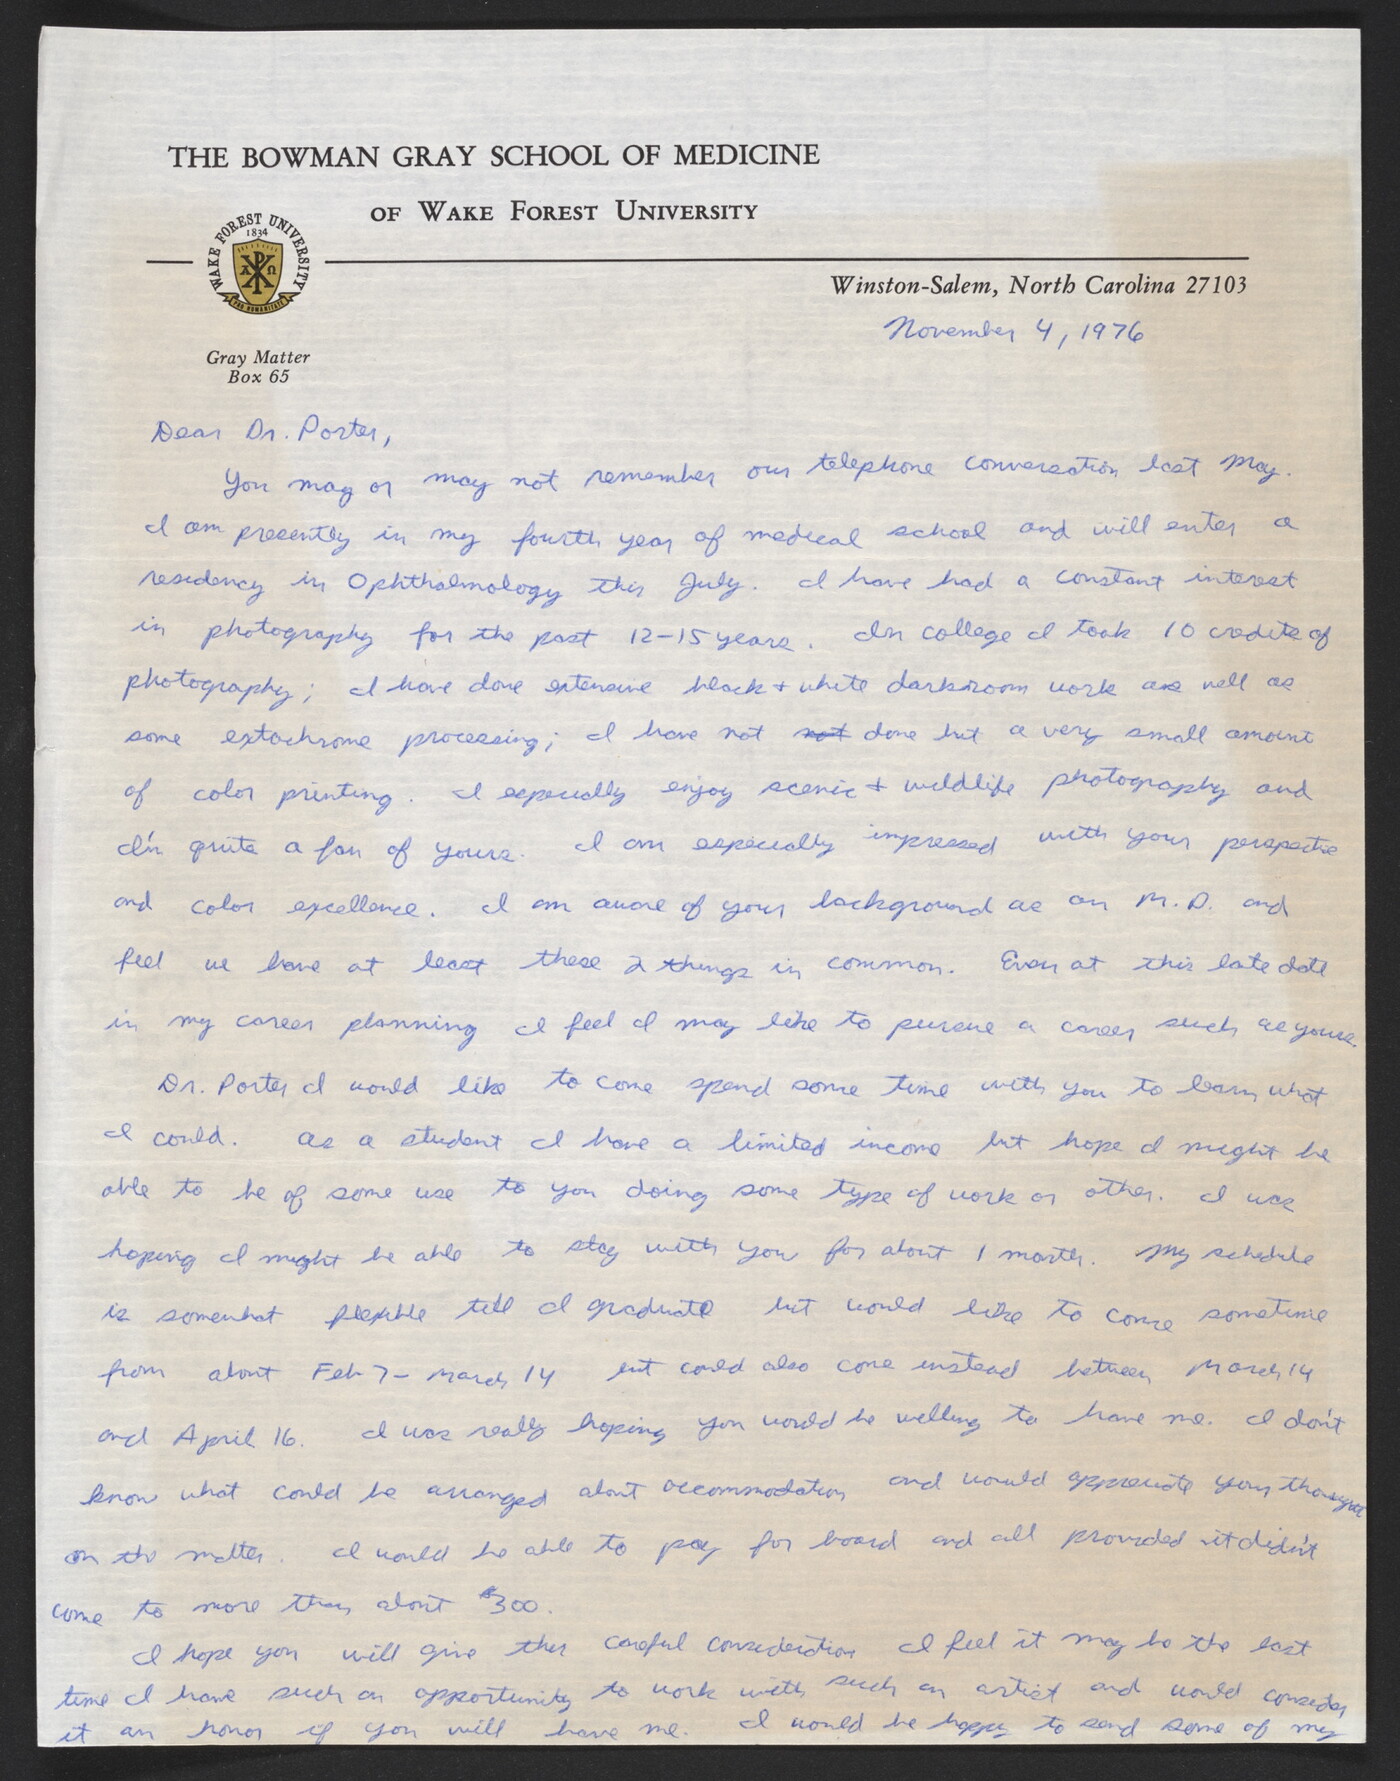 THE BOWMAN GRAY SCHOOL OF MEDICINE
OF WAKE FOREST UNIVERSITY
WAKE FOREST UNIVERSITY
1834
Α Ω
PRO HUMANITATE
Winston-Salem, North Carolina 27103
November 4, 1976
Gray Matter
Box 65
Dear Dr. Porter,
You may or may not remember our telephone conversation last May.
I am presently in my fourth year of medical school and will enter a
residency in Ophthalmology this July. I have had a constant interest
in photography for the past 12-15 years. In college I took 10 credits of
photography; I have done extensive black + white darkroom work as well as
some extachrome processing; I have not not done but a very small amount
of color printing. I especially enjoy scenic + wildlife photography and
I'm quite a fan of yours. I am especially impressed with your perspective
and color excellence. I am aware of your background as an M.D. and
feel we have at least these 2 things in common. Even at this late date
in my career planning I feel I may like to pursue a career such as yours.
Dr. Porter I would like to come spend some time with you to learn what
I could. As a student I have a limited income but hope I might be
able to be of some use to you doing some type of work or other. I was
hoping I might be able to stay with you for about 1 month. My schedule
is somewhat flexible till I graduate but would like to come sometime
from about Feb 7 - March 14 but could also come instead between March 14
and April 16. I was really hoping you would be willing to have me. I don't
know what could be arranged about accommodation and would appreciate your thoughts
on the matter. I would be able to pay for board and all provided it didn't
come to more than about $300.
I hope you will give this careful consideration I feel it may be the last
time I have such an opportunity to work with such an artist and would consider
it an honor if you will have me. I would be happy to send some of my